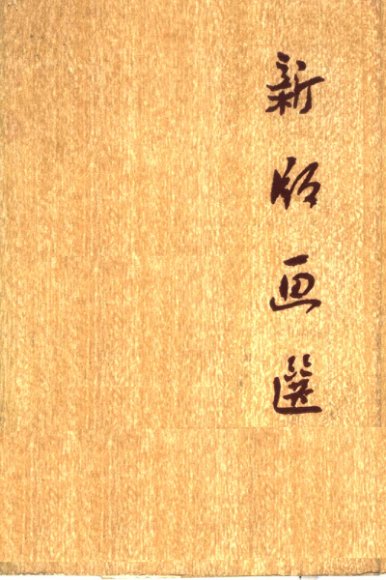 新版画選